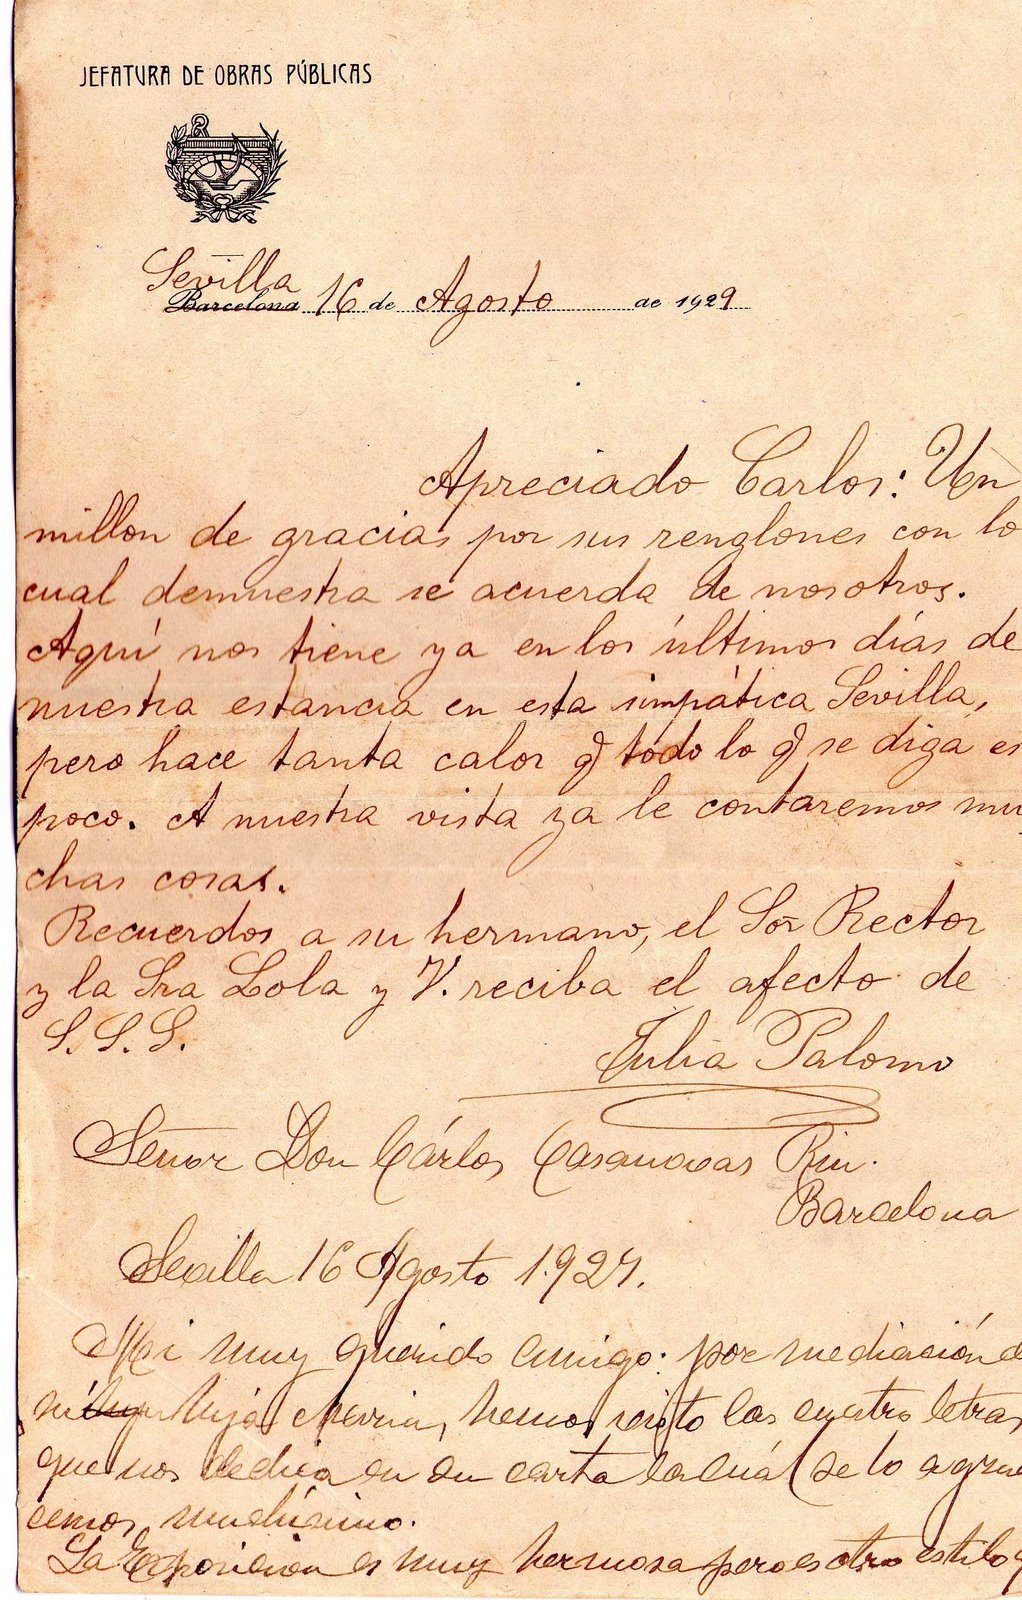 JEFATURA DE OBRAS PÚBLICAS
Sevilla
Barcelona 16 de Agosto de 1929
Apreciado Carlos: Un
millon de gracias por sus renglones con lo
cual demuestra se acuerda de nosotros.
Aquí nos tiene ya en los últimos días de
nuestra estancia en esta simpática Sevilla,
pero hace tanta calor q todo lo q se diga es
poco. A nuestra vista ya le contaremos mu
chas cosas.
Recuerdos a su hermano, el Sor Rector
y la Sra Lola y V. reciba el afecto de
S.S.S.
Julia Palomo
Señor Don Cárlos Casanovas Riu.
Barcelona
Sevilla 16 Agosto 1.929.
Mi muy querido amigo: por mediación d
mi hija hemos visto las cuatro letras
que nos dedica en su carta la cuál se lo agrade
cemos muchísimo.
La Exposicion es muy hermosa pero es otro estilo q